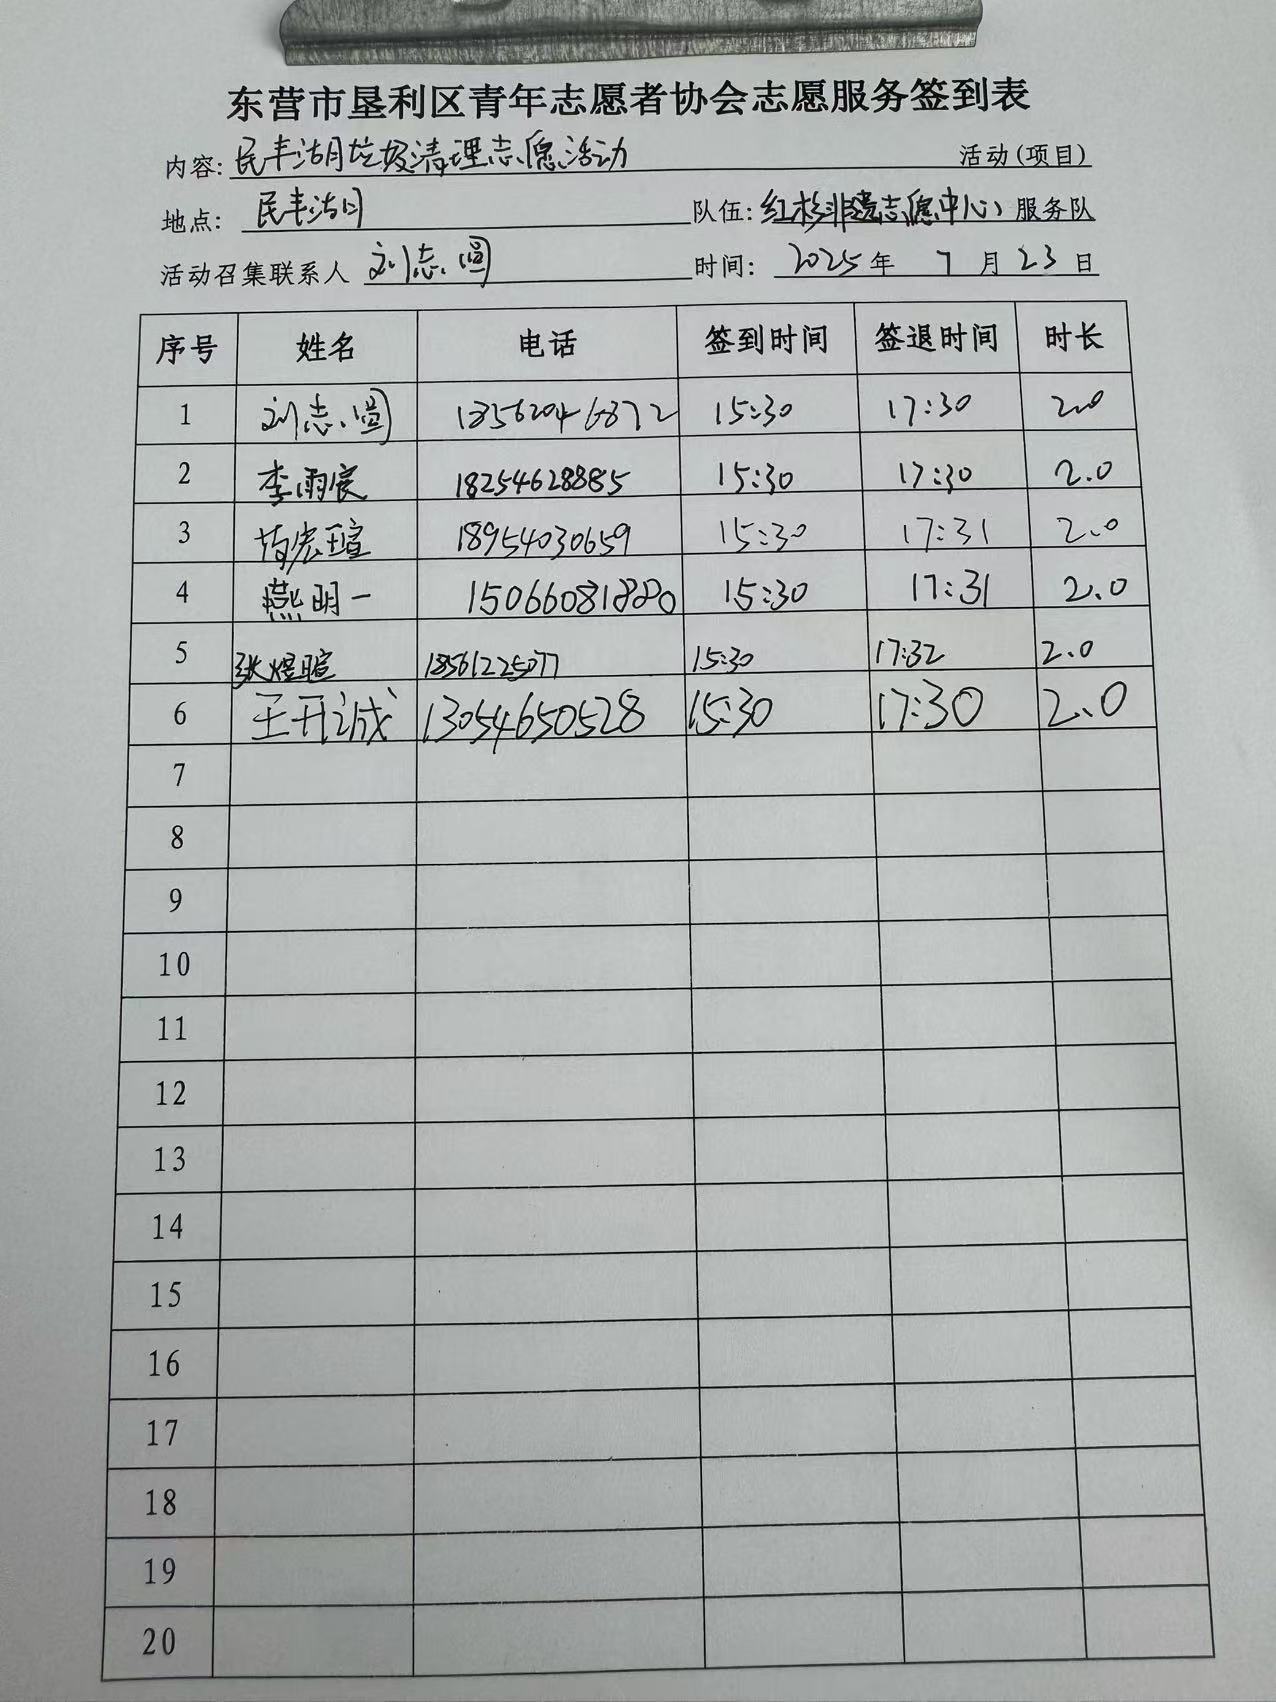 东营市垦利区青年志愿者协会志愿服务签到表
内容: 民丰湖垃圾清理志愿活动 活动(项目)
地点: 民丰湖 队伍: 红杉非遗志愿中心 服务队
活动召集联系人 刘志圆 时间: 2025 年 7 月 23 日
序号 姓名 电话 签到时间 签退时间 时长
1 刘志圆 18562046872 15:30 17:30 2.0
2 李雨宸 18254628885 15:30 17:30 2.0
3 宏瑄 18954030659 15:30 17:31 2.0
4 燕明一 15066081880 15:30 17:31 2.0
5 张煜暄 18561225077 15:30 17:32 2.0
6 王开诚 13054650528 15:30 17:30 2.0
7
8
9
10
11
12
13
14
15
16
17
18
19
20